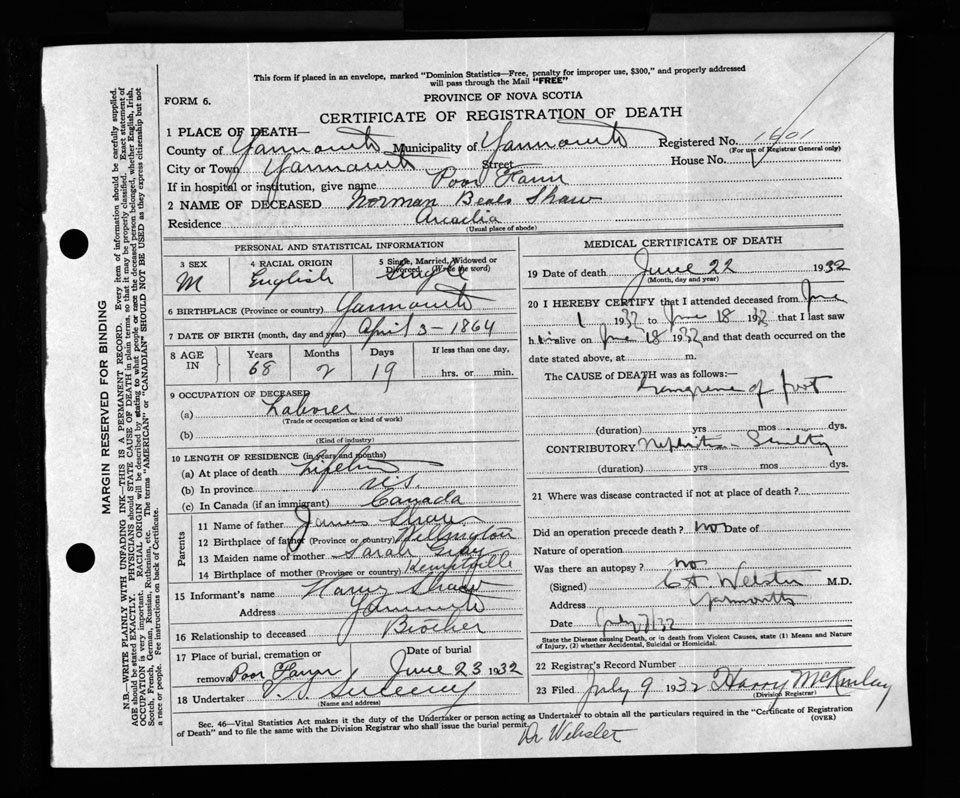 This form if placed in an envelope, marked "Dominion Statistics—Free, penalty for improper use, $300," and properly addressed
will pass through the Mail "FREE"
FORM 6.
PROVINCE OF NOVA SCOTIA
CERTIFICATE OF REGISTRATION OF DEATH
1 PLACE OF DEATH—
County of Yarmouth Municipality of Yarmouth Registered No. 1401
(For use of Registrar General only)
City or Town Yarmouth Street House No.
If in hospital or institution, give name Poor Farm
2 NAME OF DECEASED Norman Beals Shaw
Residence Arcadia
(Usual place of abode)
PERSONAL AND STATISTICAL INFORMATION
3 SEX M
4 RACIAL ORIGIN English
5 Single, Married, Widowed or Divorced (Write the word) Single
6 BIRTHPLACE (Province or country) Yarmouth
7 DATE OF BIRTH (month, day and year) April 3 - 1864
8 AGE IN Years 68 Months 2 Days 19 If less than one day, hrs. or min.
9 OCCUPATION OF DECEASED
(a) Laborer
(Trade or occupation or kind of work)
(b)
(Kind of industry)
10 LENGTH OF RESIDENCE (in years and months)
(a) At place of death Lifetime
(b) In province N.S.
(c) In Canada (if an immigrant) Canada
Parents
11 Name of father James Shaw
12 Birthplace of father (Province or country) Wellington
13 Maiden name of mother Sarah Gray
14 Birthplace of mother (Province or country) Kemptville
15 Informant's name Harry Shaw
Address Yarmouth
16 Relationship to deceased Brother
17 Place of burial, cremation or removal Poor Farm Date of burial June 23 1932
18 Undertaker V. S. Sweeney
(Name and address)
MEDICAL CERTIFICATE OF DEATH
19 Date of death June 22 1932
(Month, day and year)
20 I HEREBY CERTIFY that I attended deceased from June
1 1932 to June 18 1932 that I last saw
him alive on June 18 1932 and that death occurred on the
date stated above, at m.
The CAUSE of DEATH was as follows:—
Gangrene of foot
(duration) yrs mos dys.
CONTRIBUTORY Nephritis - Senility
(duration) yrs mos dys.
21 Where was disease contracted if not at place of death?
Did an operation precede death? no Date of
Nature of operation
Was there an autopsy? no
(Signed) Webster M.D.
Address Yarmouth
Date July 7/32
State the Disease causing Death, or in death from Violent Causes, state (1) Means and Nature
of Injury, (2) whether Accidental, Suicidal or Homicidal.
22 Registrar's Record Number
23 Filed July 9 1932 Harry McKinlay
(Division Registrar)
Sec. 46—Vital Statistics Act makes it the duty of the Undertaker or person acting as Undertaker to obtain all the particulars required in the "Certificate of Registration
of Death" and to file the same with the Division Registrar who shall issue the burial permit.
(OVER)
Dr Webster
MARGIN RESERVED FOR BINDING
N.B.—WRITE PLAINLY WITH UNFADING INK—THIS IS A PERMANENT RECORD. Every item of information should be carefully supplied.
AGE should be stated EXACTLY. PHYSICIANS should STATE CAUSE OF DEATH in plain terms, so that it may be properly classified. Exact statement of
OCCUPATION is very important. RACIAL ORIGIN will be described by stating to what people or race the deceased person belonged, whether English, Irish,
Scotch, French, German, Russian, Ruthenian, etc. The terms "AMERICAN" or "CANADIAN" SHOULD NOT BE USED as they express citizenship but not
a race or people. See instructions on back of Certificate.